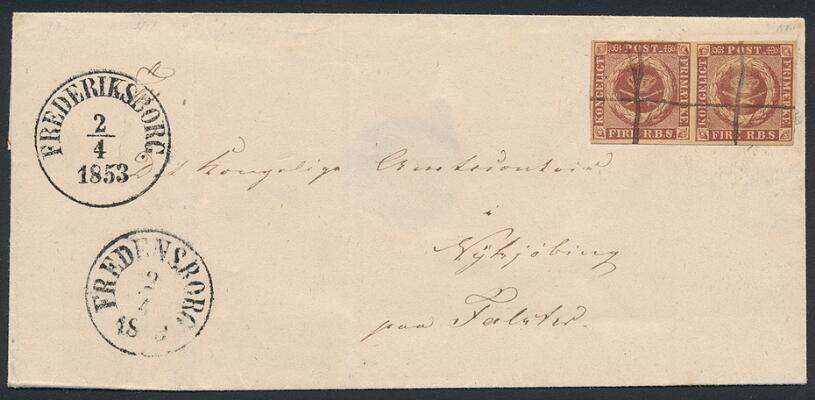 FREDERIKSBORG
2
4
1853
FREDENSBORG
2
18
KONGELIGT POST FRIMÆRKE FIRE R.B.S.
KONGELIGT POST FRIMÆRKE FIRE R.B.S.
Det Kongelige Amtstoricontoir
i
Nÿkjöbing
paa Falster.